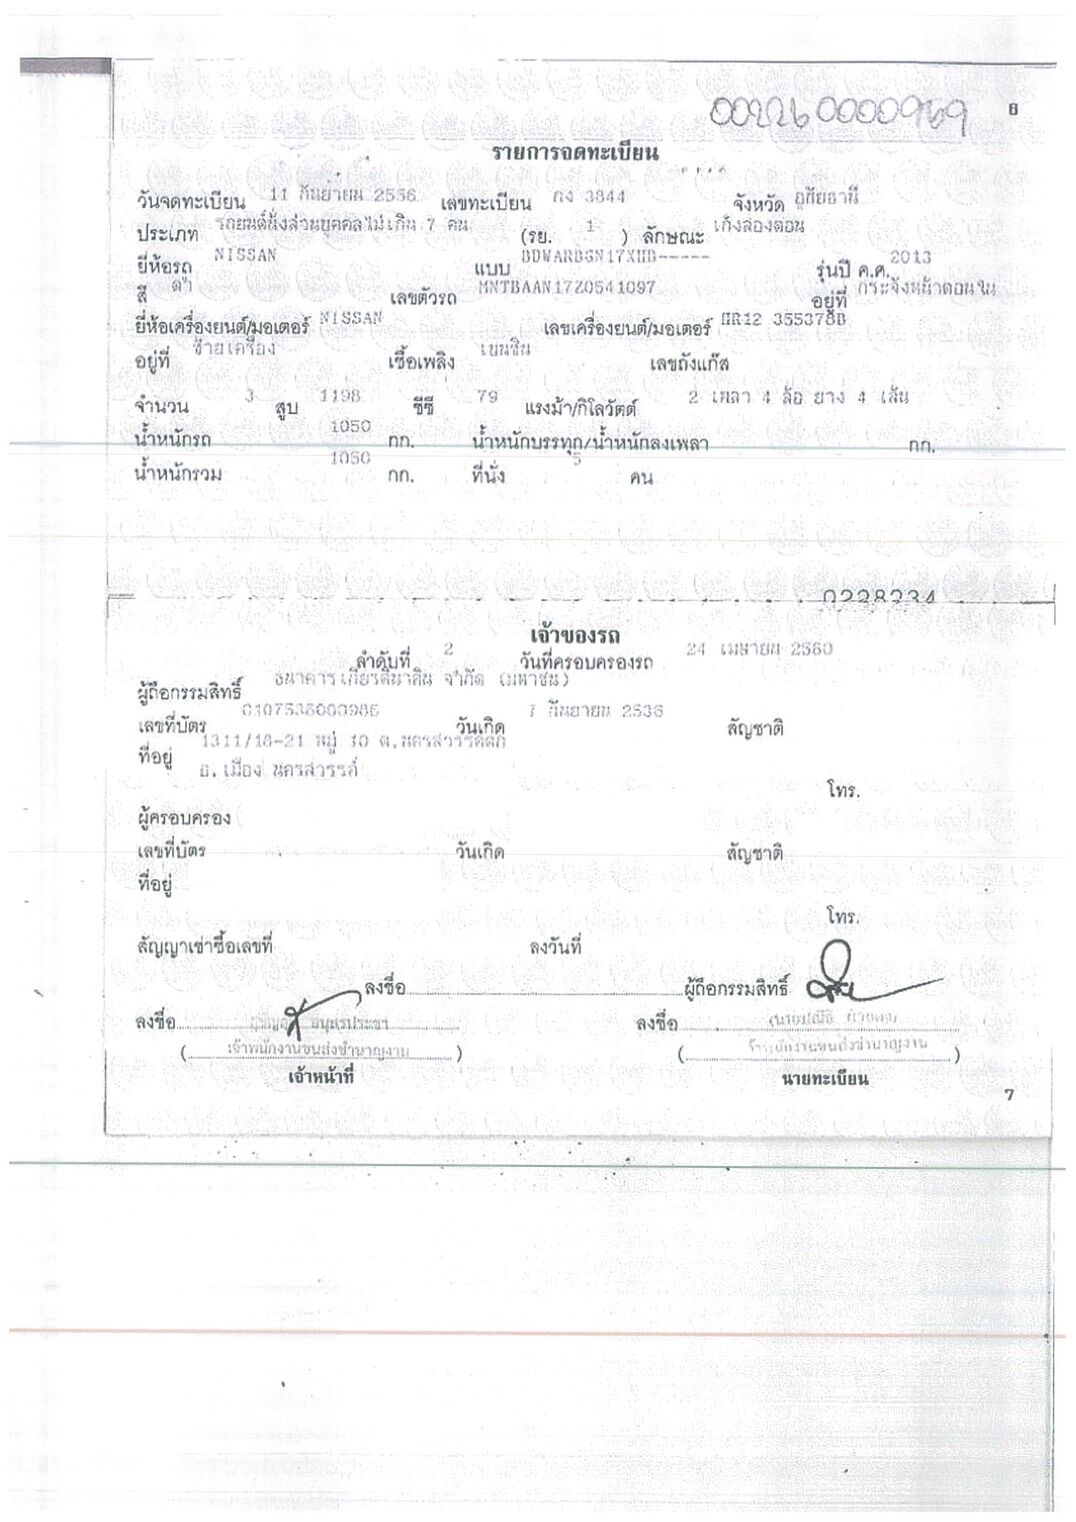 002260000969 6
รายการจดทะเบียน
วันจดทะเบียน 11 กันยายน 2556 เลขทะเบียน กง 3844 จังหวัด อุทัยธานี
ประเภท รถยนต์นั่งส่วนบุคคลไม่เกิน 7 คน (รย. 1 ) ลักษณะ เก๋งสองตอน
ยี่ห้อรถ NISSAN แบบ BDWARDGN17XHD----- รุ่นปี ค.ศ. 2013
สี ดำ เลขตัวรถ MNTBAAN17Z0541097 อยู่ที่ กระจังหน้าตอนใน
ยี่ห้อเครื่องยนต์/มอเตอร์ NISSAN เลขเครื่องยนต์/มอเตอร์ HR12 355378B
อยู่ที่ ซ้ายเครื่อง เชื้อเพลิง เบนซิน เลขถังแก๊ส
จำนวน 3 สูบ 1198 ซีซี 79 แรงม้า/กิโลวัตต์ 2 เพลา 4 ล้อ ยาง 4 เส้น
น้ำหนักรถ 1050 กก. น้ำหนักบรรทุก/น้ำหนักลงเพลา กก.
น้ำหนักรวม 1050 กก. ที่นั่ง 5 คน
0238234
เจ้าของรถ
ลำดับที่ 2 วันที่ครอบครองรถ 24 เมษายน 2560
ผู้ถือกรรมสิทธิ์ ธนาคารเกียรตินาคิน จำกัด (มหาชน)
เลขที่บัตร 0107536000986 วันเกิด 7 กันยายน 2536 สัญชาติ
ที่อยู่ 1311/16-21 หมู่ 10 ต.นครสวรรค์ตก
อ.เมือง นครสวรรค์
โทร.
ผู้ครอบครอง
เลขที่บัตร วันเกิด สัญชาติ
ที่อยู่
โทร.
สัญญาเช่าซื้อเลขที่ ลงวันที่
ลงชื่อ ผู้ถือกรรมสิทธิ์
ลงชื่อ อนุตรประชา ลงชื่อ
( เจ้าพนักงานขนส่งชำนาญงาน ) ( เจ้าพนักงานขนส่งชำนาญงาน )
เจ้าหน้าที่ นายทะเบียน
7